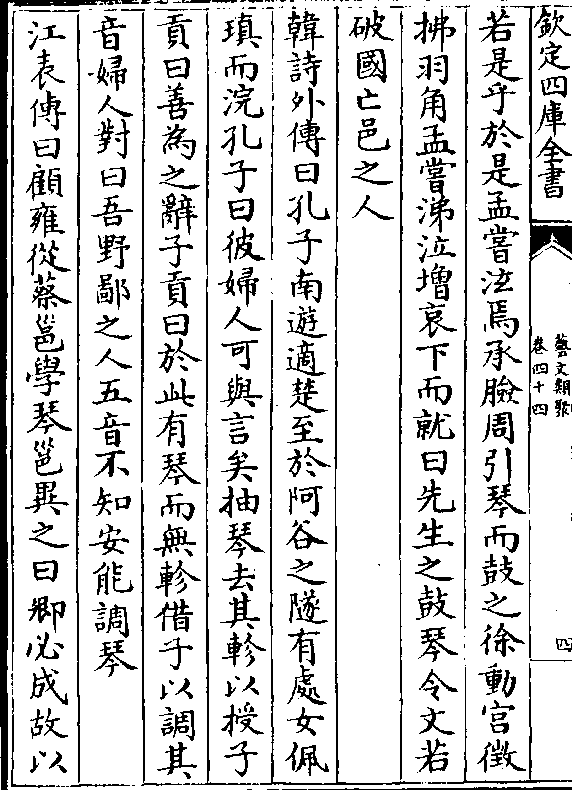 欽定四庫全書
藝文類聚
卷四十四
四
若是乎於是孟嘗泫焉承臉周引琴而鼓之徐動宮徴
拂羽角孟嘗涕泣増哀下而就曰先生之鼓琴令文若
破國亡邑之人
韓詩外傳曰孔子南遊適楚至於阿谷之隧有處女佩
瑱而浣孔子曰彼婦人可與言矣抽琴去其軫以授子
貢曰善為之辭子貢曰於此有琴而無軫借子以調其
音婦人對曰吾野鄙之人五音不知安能調琴
江表傳曰顧雍從蔡邕學琴邕異之曰卿必成故以